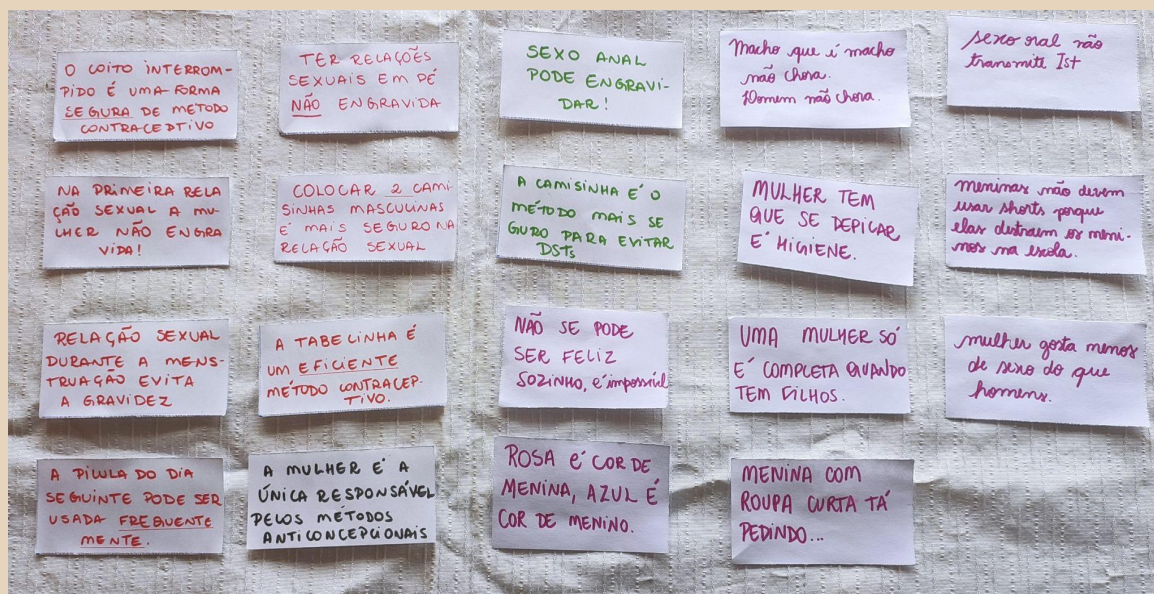 O COITO INTERROM-
PIDO É UMA FORMA
SEGURA DE METODO
CONTRACEDTIVO
TER RELAÇÕES
SEXUAIS EM PÉ
NÃO ENGRAVIDA
SEXO ANAL
PODE ENGRAVI-
DAR!
Macho que é macho
não chora.
Homem não chora.
sexo oral não
transmite Ist
NA PRIMEIRA RELA
ÇÃO SEXUAL A MU-
LHER NÃO ENGRA
VIDA!
COLOCAR 2 CAMI
SINHAS MASCULINAS
É MAIS SEGURO NA
RELAÇÃO SEXUAL
A CAMISINHA É O
MÉTODO MAIS SE
GURO PARA EVITAR
DSTs
MULHER TEM
QUE SE DEPILAR
É HIGIENE.
meninas não devem
usar shorts porque
elas distraem os meni-
nos na escola.
RELAÇÃO SEXUAL
DURANTE A MENS-
TRUAÇÃO EVITA
A GRAVIDEZ
A TABELINHA É
UM EFICIENTE
MÉTODO CONTRACEP-
TIVO.
NÃO SE PODE
SER FELIZ
SOZINHO, é impossível
UMA MULHER SÓ
É COMPLETA QUANDO
TEM FILHOS.
mulher gosta menos
de sexo do que
homens.
A PÍLULA DO DIA
SEGUINTE PODE SER
USADA FREQUENTE
MENTE.
A MULHER É A
ÚNICA RESPONSÁVEL
PELOS MÉTODOS
ANTICONCEPCIONAIS
ROSA é COR DE
MENINA, AZUL É
COR DE MENINO.
MENINA COM
ROUPA CURTA TÁ
PEDINDO...